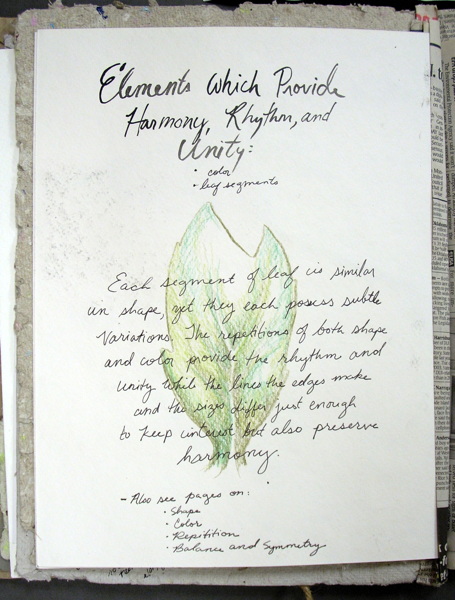 Elements Which Provide
Harmony, Rhythm, and
Unity:
• color
• leaf segments
Each segment of leaf is similar
in shape, yet they each possess subtle
Variations. The repetitions of both shape
and color provide the rhythm and
unity while the lines the edges make
and the sizes differ just enough
to keep interest but also preserve
harmony.
- Also see pages on:
• Shape
• Color
• Repitition
• Balance and Symmetry